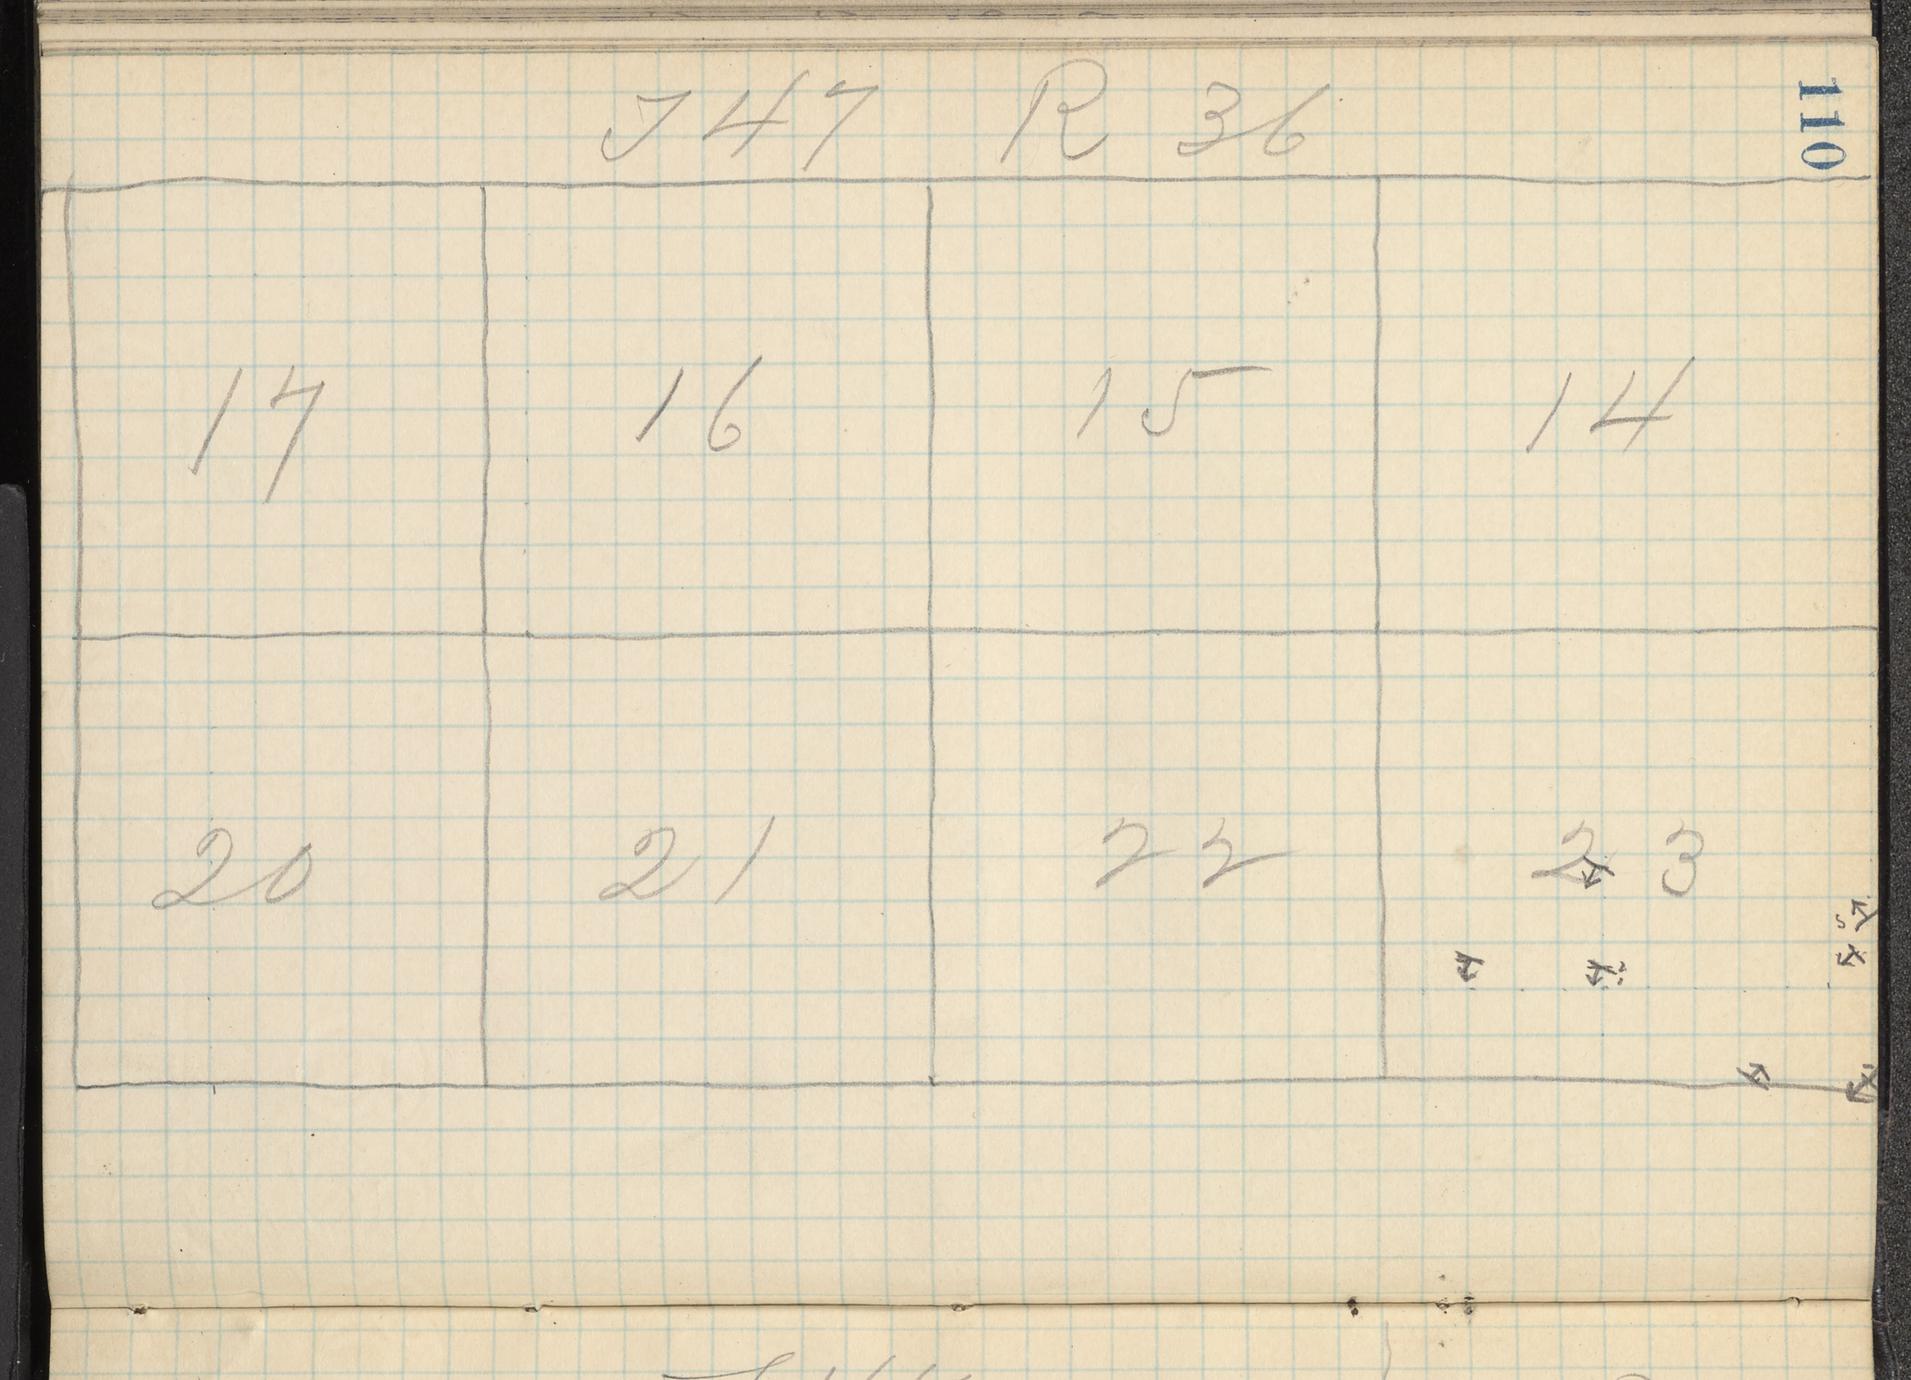 T 47 R 36
110
17 16 15 14
20 21 22 23